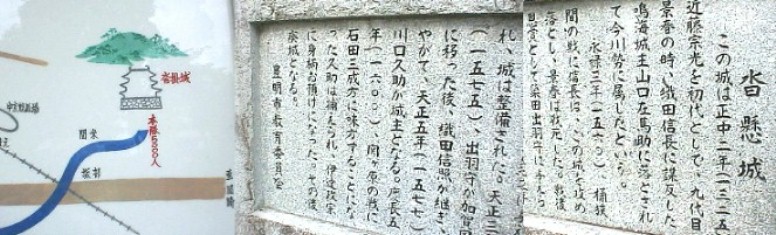 沓懸城
この城は正中二年(一三二五
近藤宗光を初代として、九代目
景春の時、織田信長に謀反した
鳴海城主山口左馬助に落とされ
て今川勢に属したという。
永禄三年(一五六〇)、桶狭
間の戦に信長は、この城を攻め
落とし、景春は戦死した。戦後
恩賞として簗田出羽守に与えら
れ、城は整備された。天正三
(一五七五)、出羽守が加賀
に移った後、織田信照が継ぎ、
やがて、天正五年(一五七七)
川口久助が城主となる。慶長五
年(一六〇〇)、関ヶ原の戦に
石田三成方に味方することにな
った久助は捕えられ、伊達政宗
に身柄お預けになった。その後
廃城となる。
豊明市教育委員会
沓掛城
本隊5000人
間米